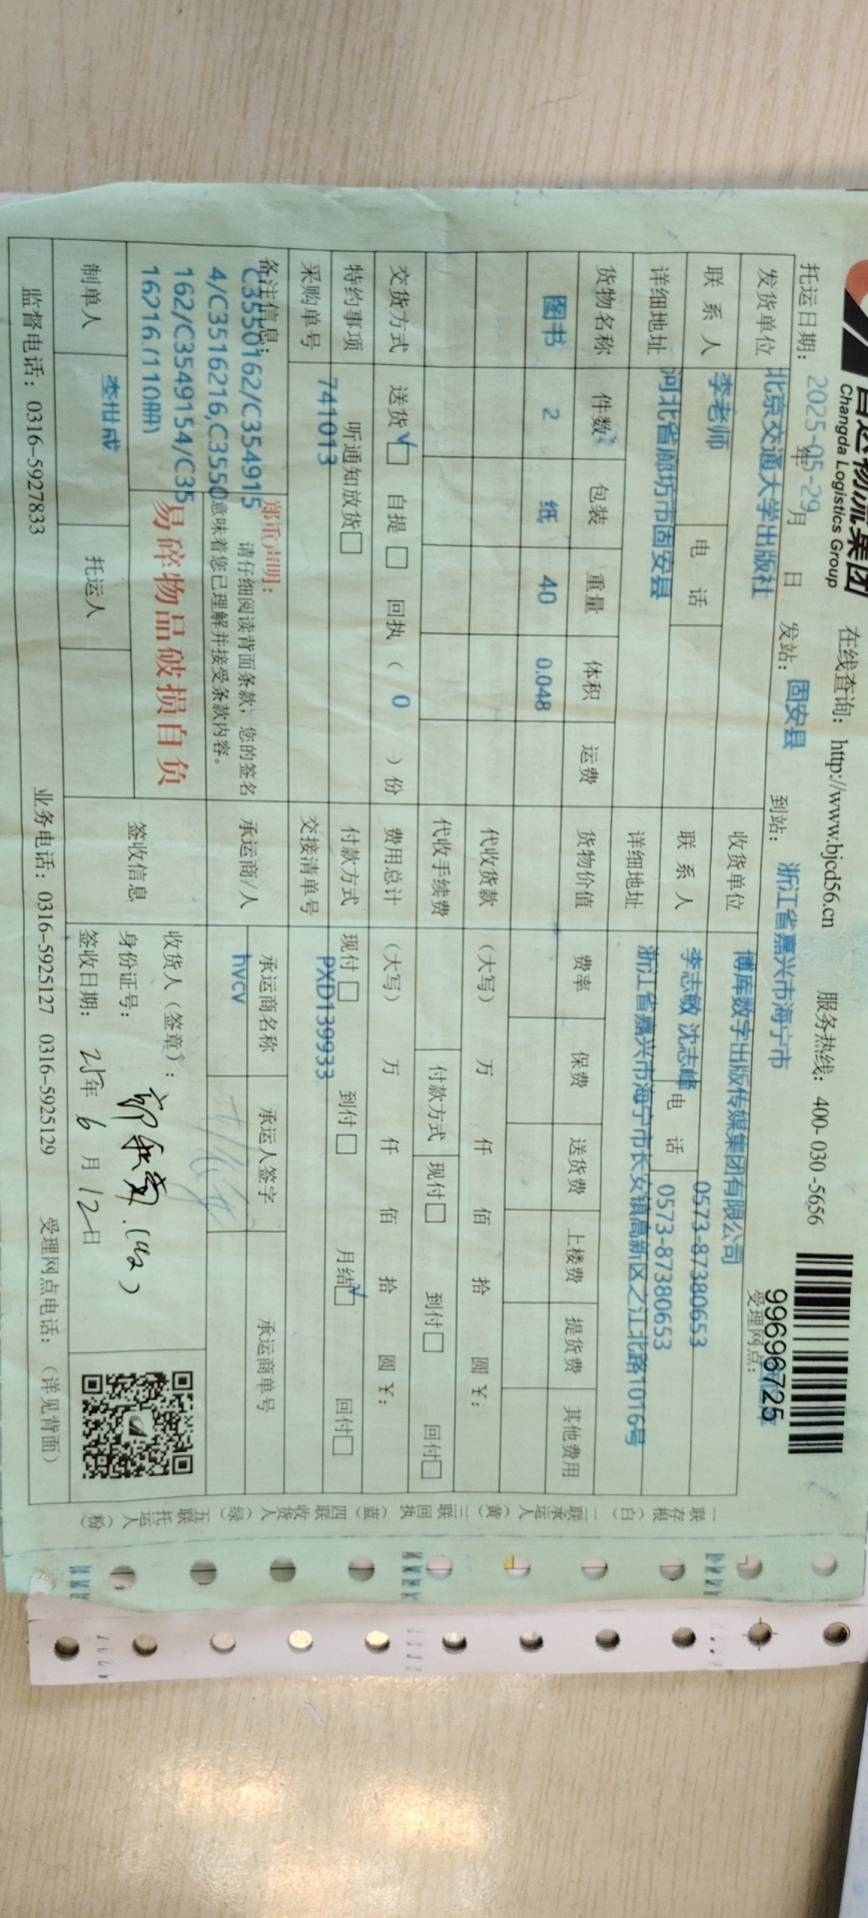 昌达物流集团
Changda Logistics Group
在线查询：http://www.bjcd56.cn 服务热线：400-030-5656
99696725
托运日期：2025-05-29 年 月 日 发站：固安县 到站：浙江省嘉兴市海宁市 受理网点：
发货单位 北京交通大学出版社 收货单位 博库数字出版传媒集团有限公司
联系人 李老师 电话 联系人 李志敏 沈志峰 电话 0573-87380653
0573-87380653
详细地址 河北省廊坊市固安县 详细地址 浙江省嘉兴市海宁市长安镇高新区之江北路1016号
货物名称 件数 包装 重量 体积 运费 货物价值 费率 保费 送货费 上楼费 提货费 其他费用
图书 2 纸 40 0.048
代收货款 （大写） 万 仟 佰 拾 圆 ¥：
代收手续费 付款方式 现付□ 到付□ 回付□
交货方式 送货□ 自提□ 回执（ 0 ）份 费用总计 （大写） 万 仟 佰 拾 圆 ¥：
特约事项 听通知放货□ 付款方式 现付□ 到付□ 月结□ 回付□
采购单号 741013 交接清单号 PXD139933
备注信息：
C3550162/C354915
4/C3516216,C3550
162/C3549154/C35
16216.(110册)
郑重声明：请仔细阅读背面条款；您的签名
意味着您已理解并接受条款内容。
易碎物品破损自负
承运商/人 承运商名称 承运人签字 承运商单号
hvcv
签收信息 收货人（签章）：
身份证号：
签收日期：25年 6月 12日
制单人 李世成 托运人
监督电话：0316-5927833 业务电话：0316-5925127 0316-5925129 受理网点电话：（详见背面）
一联存根（白） 二联承运人（黄） 三联回执（蓝） 四联收货人（绿） 五联托运人（粉）